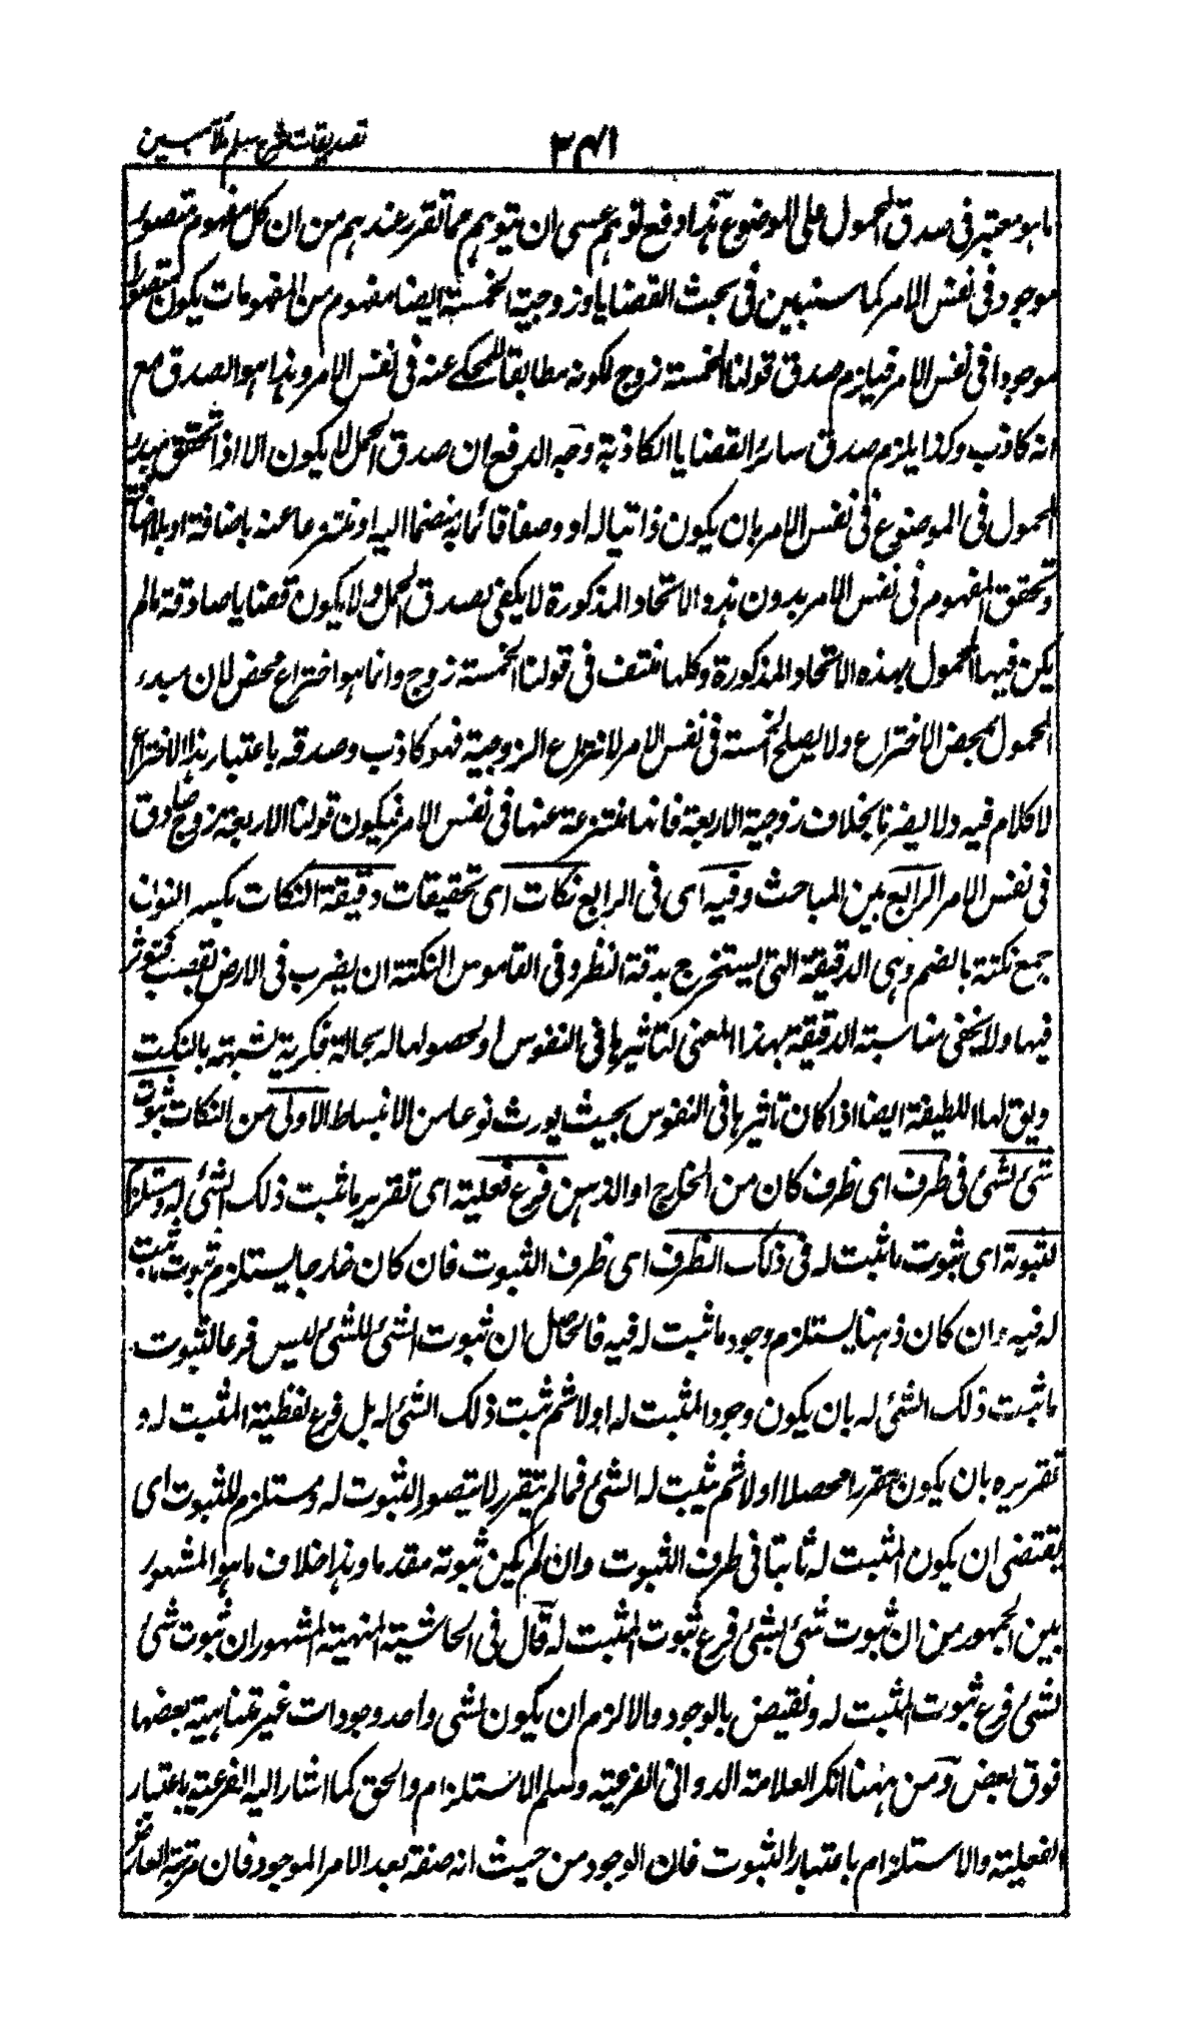 تصديقات شرح سلم ملا مبين
٢٤١
ما هو معتبر فى صدق المحمول على الموضوع هذا دفع توهم عسى ان يتوهم مما تقرر عندهم من ان كل مفهوم متصور
موجود فى نفس الامر كما ستبين فى بحث القضايا و زوجية الخمسة ايضا مفهوم من المفهومات يكون متصورا
موجودا فى نفس الامر فيلزم صدق قولنا الخمسة زوج لكونه مطابقا للمحكے عنه فى نفس الامر وهذا هو الصدق مع
انه كاذب وكذا يلزم صدق سائر القضايا الكاذبة وجه الدفع ان صدق الحمل لا يكون الا اذا تحقق مبدء
المحمول فى الموضوع فى نفس الامر بان يكون ذاتيا له او وصفا قائما به منضما اليه او منتزعا عنه باضافة او بلا اضافة
وتحقق المفهوم فى نفس الامر بدون هذه الاتحاد المذكورة لا يكفى لصدق الحمل ولا يكون قضايا صادقة مالم
يكن فيها المحمول بهذه الاتحاد المذكورة وكلها منتف فى قولنا الخمسة زوج وانما هو اختراع محض لان مبدء
المحمول بمحض الاختراع ولا يصلح الخمسة فى نفس الامر لانتزاع الزوجية فهو كاذب وصدقه باعتبار هذا الاختراع
لا كلام فيه ولا يضرنا بخلاف زوجية الاربعة فانها منتزعة عنها فى نفس الامر فيكون قولنا الاربعة زوج صادق
فى نفس الامر الرابع بين المباحث وفيه اى فى الرابع نكات اى تحقيقات دقيقة النكات بكسر النون
جمع نكتة بالضم وهى الدقيقة التى يستخرج بدقة النظر وفى القاموس النكتة ان يضرب فى الارض بقضيب فيؤثر
فيها ولا يخفى مناسبة الدقيقة بهذا المعنى لتاثيرها فى النفوس او لحصولها له بحالة فكرية شبيهة بالنكت
ويق لها اللطيفة ايضا اذا كان تاثيرها فى النفوس بحيث يورث نوعا من الانبساط الاولى من النكات ثبوت
شئ لشئ فى ظرف اى ظرف كان من الخارج او الذهن فرع فعلية اى تقرير ما ثبت ذلك الشئ له ومستلزم
لثبوته اى ثبوت ما ثبت له فى ذلك الظرف اى ظرف الثبوت فان كان خارجا يستلزم ثبوت ما ثبت
له فيه وان كان ذهنا يستلزم وجود ما ثبت له فيه فالحاصل ان ثبوت الشئ للشئ ليس فرعا لثبوت
ما ثبت ذلك الشئ له بان يكون وجود المثبت له اولا ثم ثبت ذلك الشئ له بل فرع لفظية المثبت له و
تقريره بان يكون متقررا محصلا اولا ثم يثبت له الشئ فما لم يتقرر لا يتصور الثبوت له ومستلزم للثبوت اى
يقتضى ان يكون المثبت له ثابتا فى ظرف الثبوت وان لم يكن ثبوته مقدما وهذا خلاف ما هو المشهور
بين الجمهور من ان ثبوت شئ لشئ فرع ثبوت المثبت له قال فى الحاشية المنهية المشهور ان ثبوت شئ
لشئ فرع ثبوت المثبت له ونقيض بالوجود والا لزم ان يكون لشى واحد وجودات غير متناهية بعضها
فوق بعض ومن ههنا انكر العلامة الدوانى الفرعية وسلم الاستلزام والحق كما اشار اليه الفرعية باعتبار
الفعلية والاستلزام باعتبار الثبوت فان الوجود من حيث انه صفة بعد الامر الموجود فان مرتبة العارض